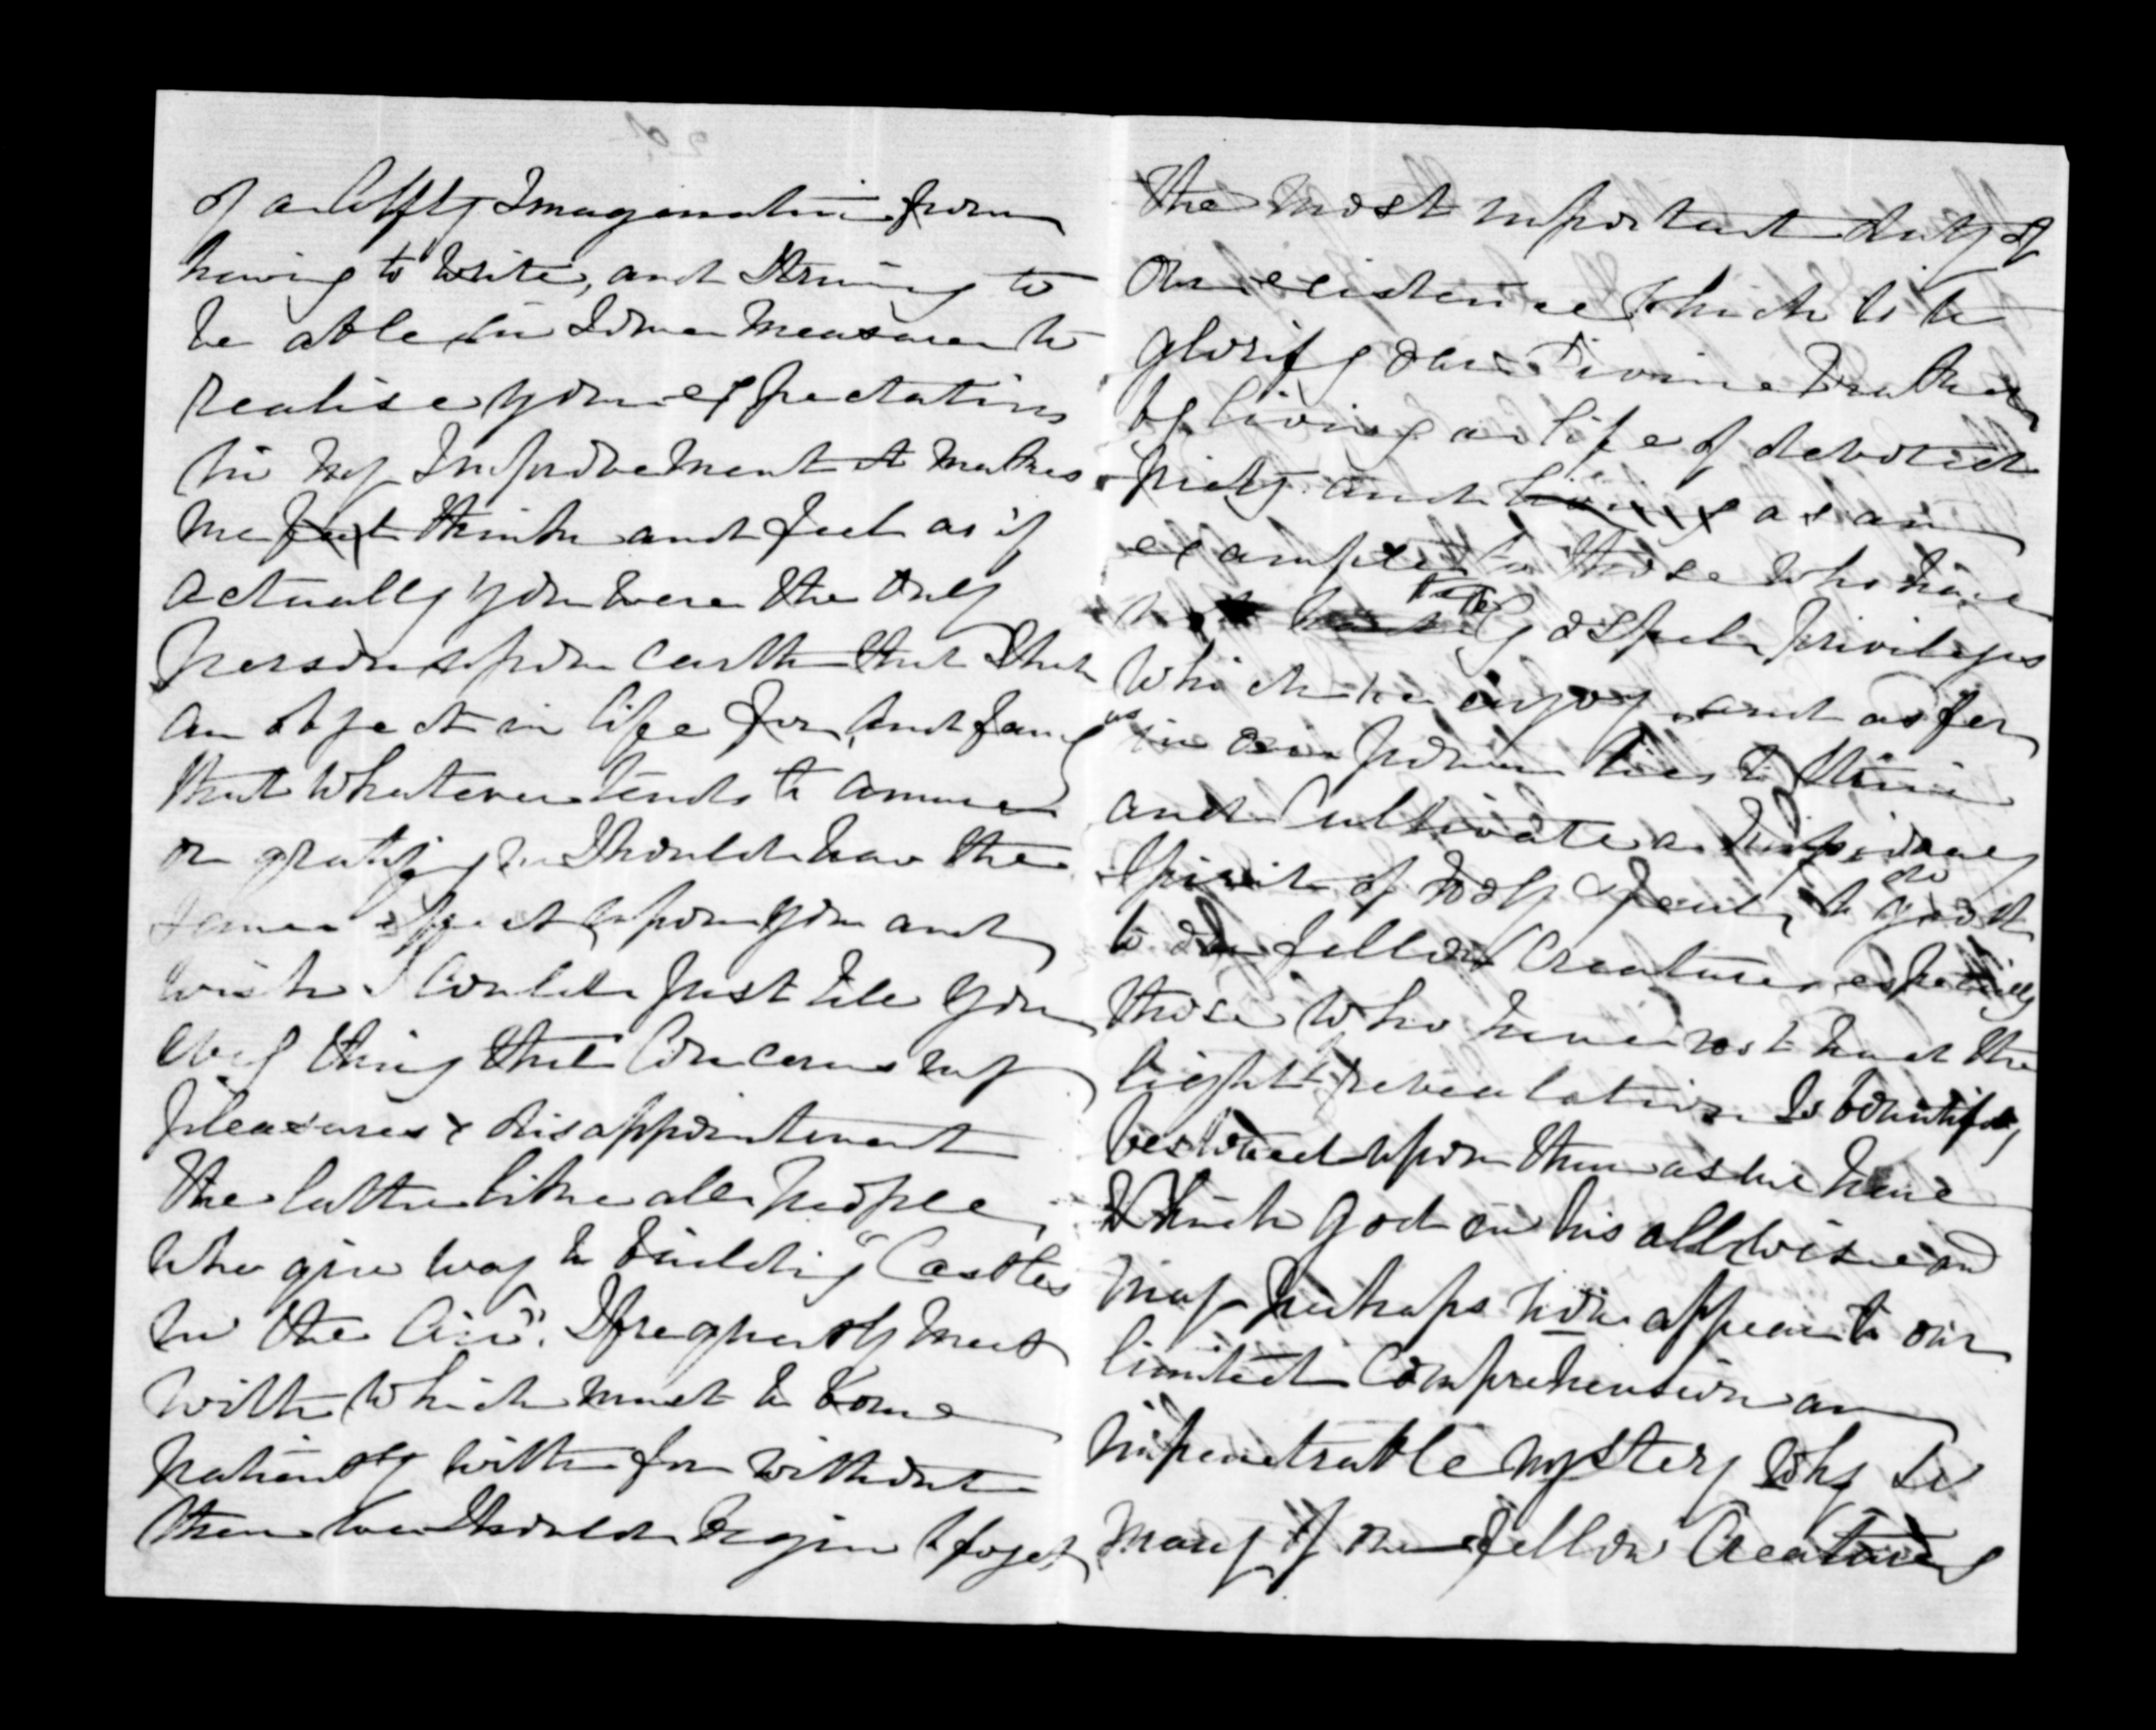 of a lofty Imagination from
having to write, and striving to
be able in some measure to
realise your expectations
in my Improvement it makes
me feel think and feel as if
actually you were the only
person upon earth that I had
an object in life for, and fancy
that whatever tends to amuse
or gratify me should have the
same effect upon you and
wish I could just tele you
evey thing that concerns my
pleasures & disappointment
the latter like all people
who give way to building "Castles
in the Air". I frequently meet
with which must be borne
patiently with for without
them we should begin to forget
the most important duty of
our existence which is to
glorify our Divine
by living a life of devoted
piety and living as an
example to those who have
not the Gospel privileges
which we enjoy and as far
as in our power lies to strive
and cultivate a
Spirit of holy to do good
to our fellow Creatures especially
those who have not had the
light revelation so bountifully
bestowed upon them as we have
Which God in his all wise end
may perhaps now appear to our
limited Comprehension an
impenetrable mystery why so
many of our fellow Creatures